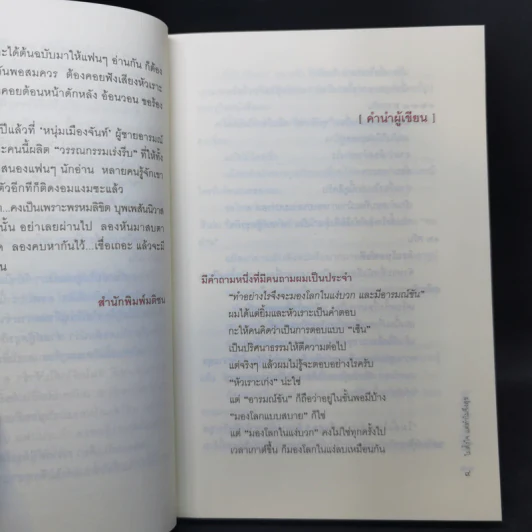 ะได้ต้นฉบับมาให้แฟนๆ อ่านกัน ก็ต้อง
ันพอสมควร ต้องคอยฟังเสียงหัวเราะ
คอยต้อนหน้าดักหลัง อ้อนวอน ขอร้อง
ปีแล้วที่ ‘หนุ่มเมืองจันท์’ ผู้ชายอารมณ์
ะคนนี้ผลิต “วรรณกรรมเร่งรีบ” ที่ให้ทั้ง
สนองแฟนๆ นักอ่าน หลายคนรู้จักเขา
ตัวอีกทีก็ติดงอมแงมซะแล้ว
...คงเป็นเพราะพรหมลิขิต บุพเพสันนิวาส
นั้น อย่าเลยผ่านไป ลองหันมาสบตา
ลองคบหากันไว้...เชื่อเถอะ แล้วจะมี
น
สำนักพิมพ์มติชน
[ คำนำผู้เขียน ]
มีคำถามหนึ่งที่มีคนถามผมเป็นประจำ
“ทำอย่างไรจึงจะมองโลกในแง่บวก และมีอารมณ์ขัน”
ผมได้แต่ยิ้มและหัวเราะเป็นคำตอบ
กะให้คนคิดว่าเป็นการตอบแบบ “เซ็น”
เป็นปริศนาธรรมให้ตีความต่อไป
แต่จริงๆ แล้วผมไม่รู้จะตอบอย่างไรครับ
“หัวเราะเก่ง” น่ะใช่
แต่ “อารมณ์ขัน” ก็ถือว่าอยู่ในขั้นพอมีบ้าง
“มองโลกแบบสบาย” ก็ใช่
แต่ “มองโลกในแง่บวก” คงไม่ใช่ทุกครั้งไป
เวลาเกาต์ขึ้น ก็มองโลกในแง่ลบเหมือนกัน